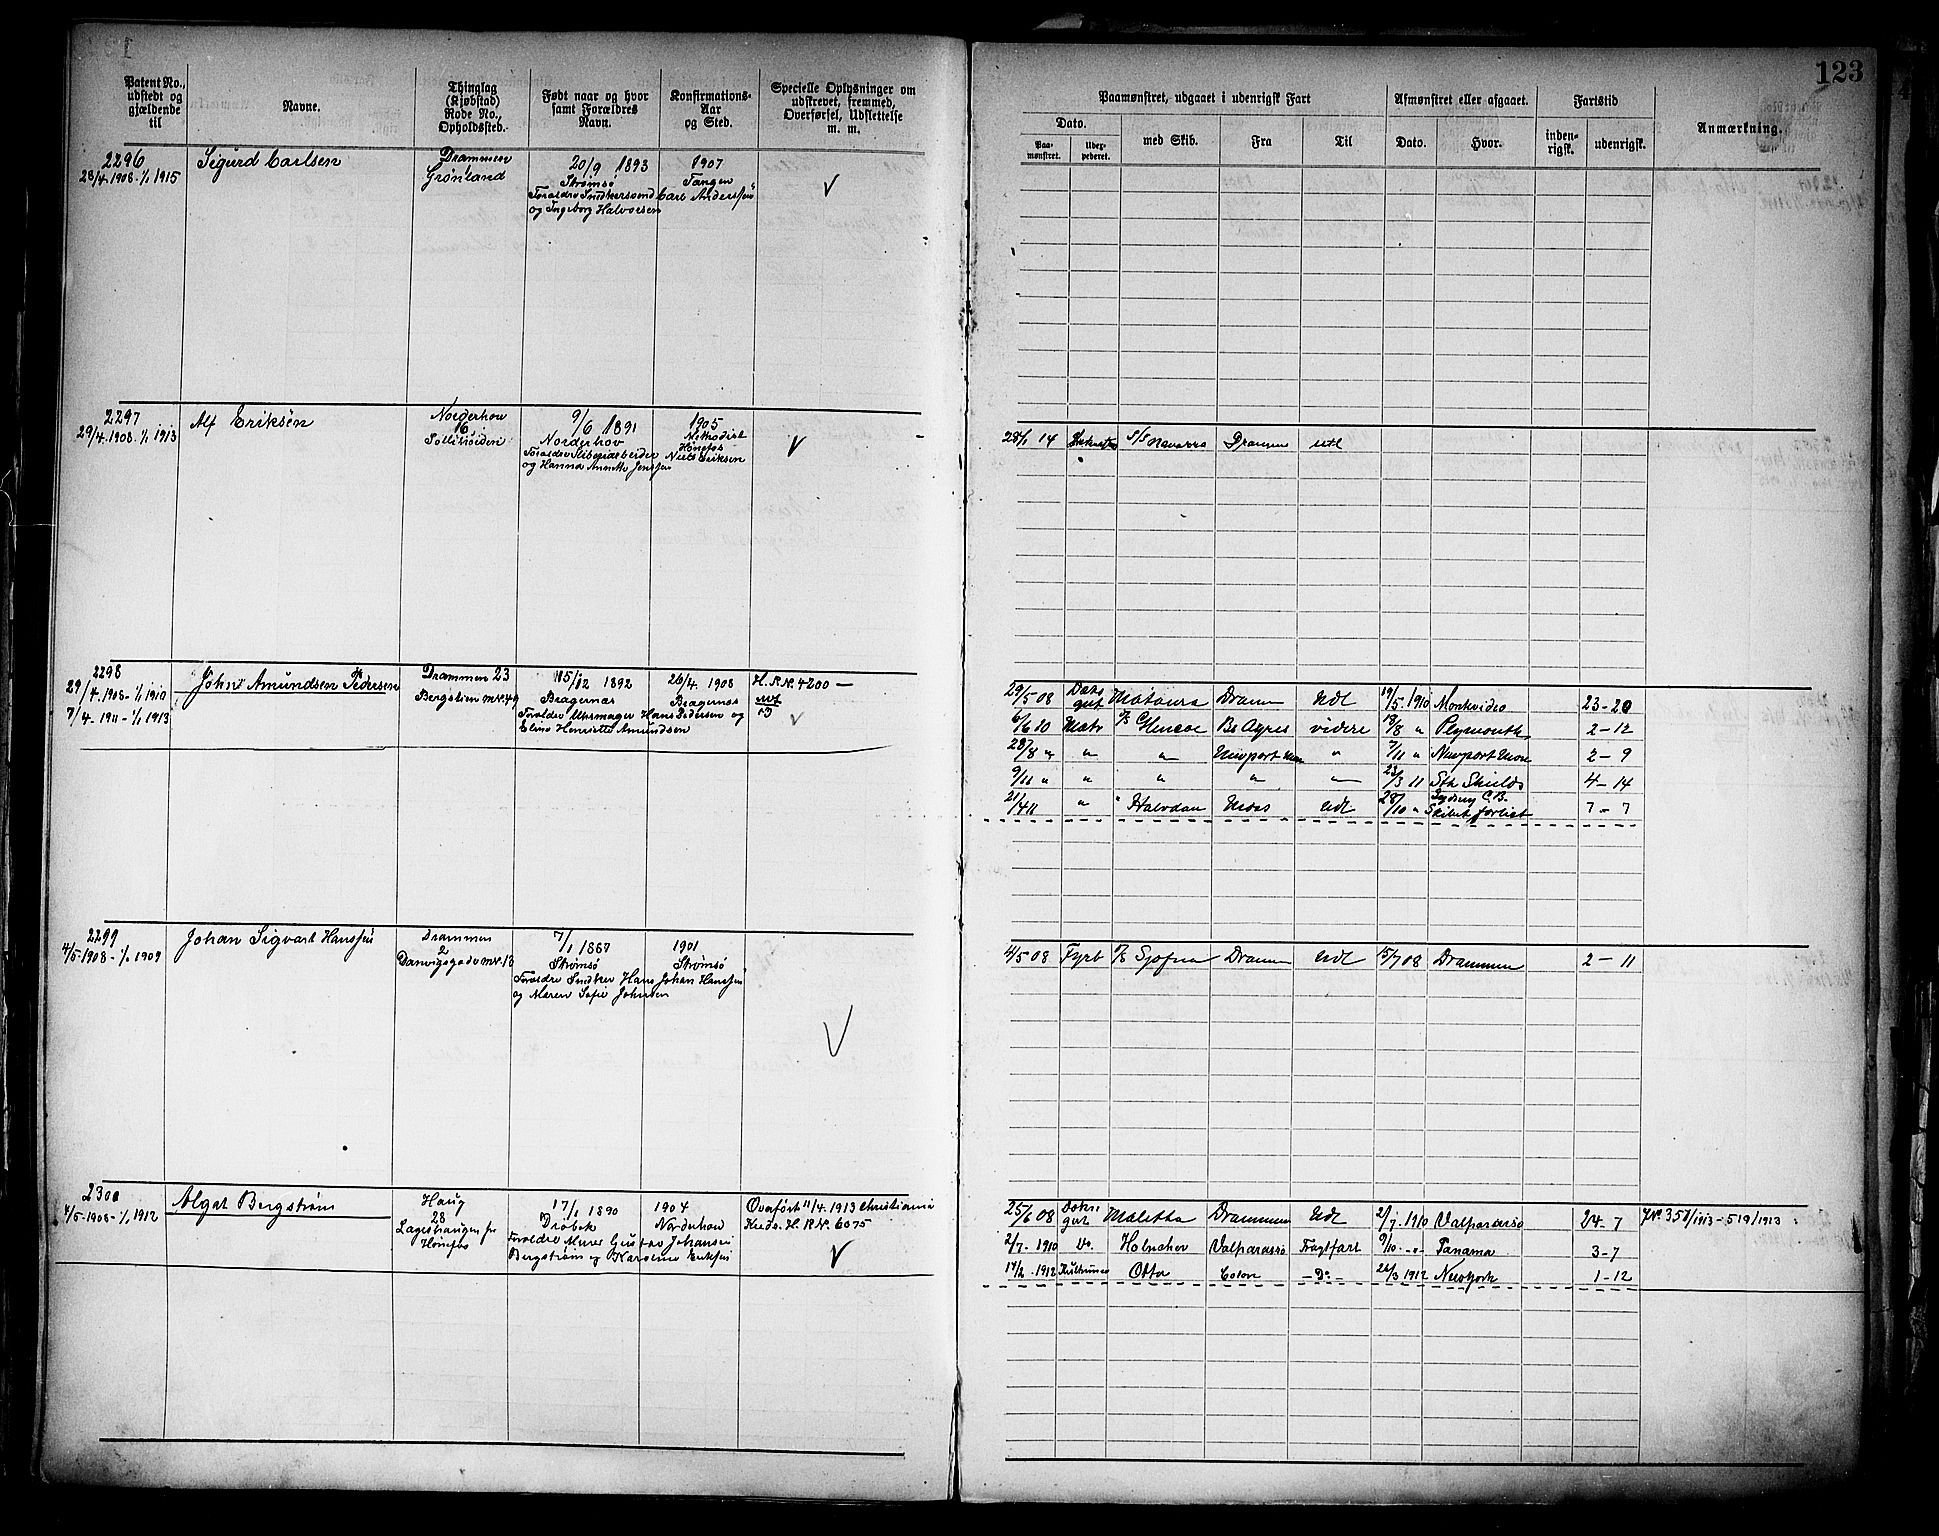 123
Patent No., udstedt og gjældende til
Navne.
Thinglag (Kjøbstad) Rode No., Opholdssted.
Født naar og hvor samt Forældres Navn.
Konfirmations-Aar og Sted.
Specielle Oplysninger om udskrevet, fremmed, Overførsel, Udslettelse m. m.
Paamønstret, udgaaet i udenrigsk Fart
Dato.
Paa-mønstret.
Udex-pederet.
med Skib.
Fra
Til
Afmønstret eller afgaaet.
Dato.
Hvor.
Fartstid
inden-rigsk.
udenrigsk.
Anmærkning.
2296
28/4 1908 - 1/1 1915
Sigurd Carlsen
Drammen
Grønland
20/9 1893
Strømsø
Forældre Snedkersvend Carl Anderssen
og Ingeborg Halvorsen
1907
Tangen
2297
29/4 1908 - 1/1 1913
Alf Eriksen
Norderhov
16
9/6 1891
Norderhov
Forældre Sliberiarbeider Niels Eriksen
og Hanna Annette Jenssen
1905
Methodist
Hønefos
28/1 14 S/S Navarra Drammen Udl
2298
29/4 1908 - 1/1 1910
7/4 - 1911 - 1/1 1913
John Amundsen Pedersen
Drammen 23
Bergstien nr. 49
15/12 1892
Bragernæs
Forældre Uhrmager Hans Pedersen og
Eline Henriette Amundsen
26/4 1908
Bragernæs
H. R. N. 4200 —
29/5 08 Dæksgut Mataura Drammen Udl 19/5 1910 Montevideo 23 - 20
6/6 10 Matr Glencoe Bs Ayres videre 18/8 " Plymouth 2 - 12
28/8 " " " Newport Mon " 7/11 " Newport Mon 2 - 9
9/11 " " " " " 23/3 11 Sth Shields 4 - 14
21/4 11 " " Halvdan Moss Udl 28/10 " Sydney C. B. Skibet forlist 7 - 7
2299
4/5 - 1908 - 1/1 1909
Johan Sigvart Hanssen
Drammen
2
Danvigsgade nr. 13
7/1 1867
Strømsø
Forældre Snedker Hans Johan Hanssen
og Maren Sofie Johnsen
1901
Strømsø
14/5 08 Fyrb Sjofna Drammen Udl 15/7 08 Drammen 2 - 11
2300
4/5 - 1908 - 1/1 1912
Algot Bergstrøm
Haug
28
Hønefos
17/1 1890
Drøbak
Forældre Murer Gustav Johansen
Bergstrøm og Karoline Eriksen
1904
Norderhov
Overført 11/4 1913 Christiania
Kreds. H. R. N. 6075
25/6 08 Dæksgut Maletta Drammen Udl 2/7 1910 Valparaiso 24 - 7 JN. 357/1913 - 519/1913
2/7 - 1910 Do. Valparaiso Fragtfart 9/10 - " - Panama 3 - 7
14/2 - 1912 Otta Colon - Do - 26/3 1912 Newyork 1 - 12